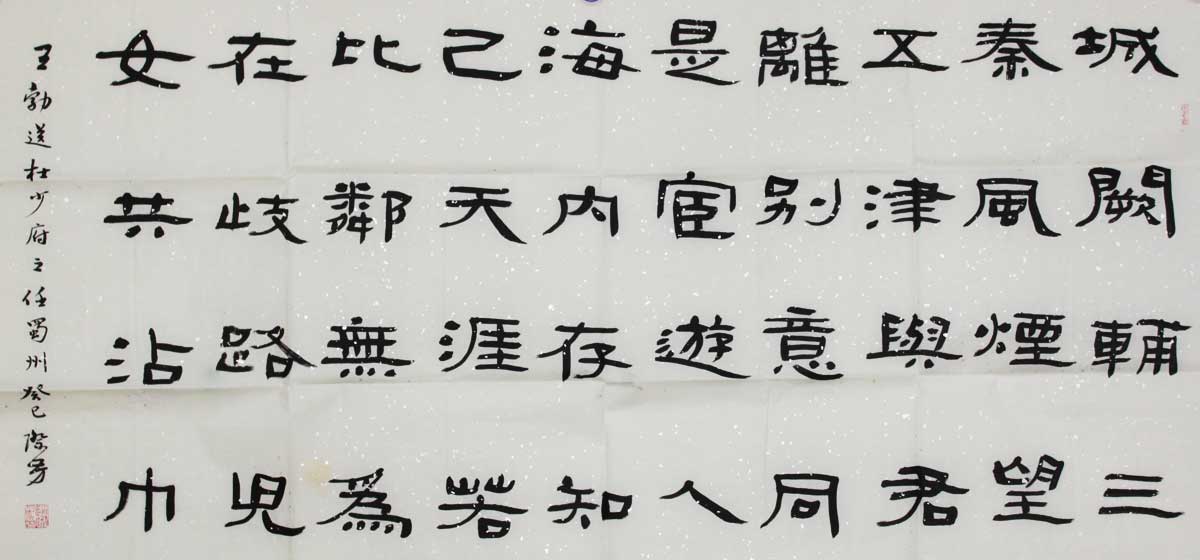 城闕輔三
秦風煙望
五津與君
離別意同
是宦遊人
海内存知
己天涯若
比鄰無為
在歧路兒
女共沾巾
王勃送杜少府之任蜀州癸巳